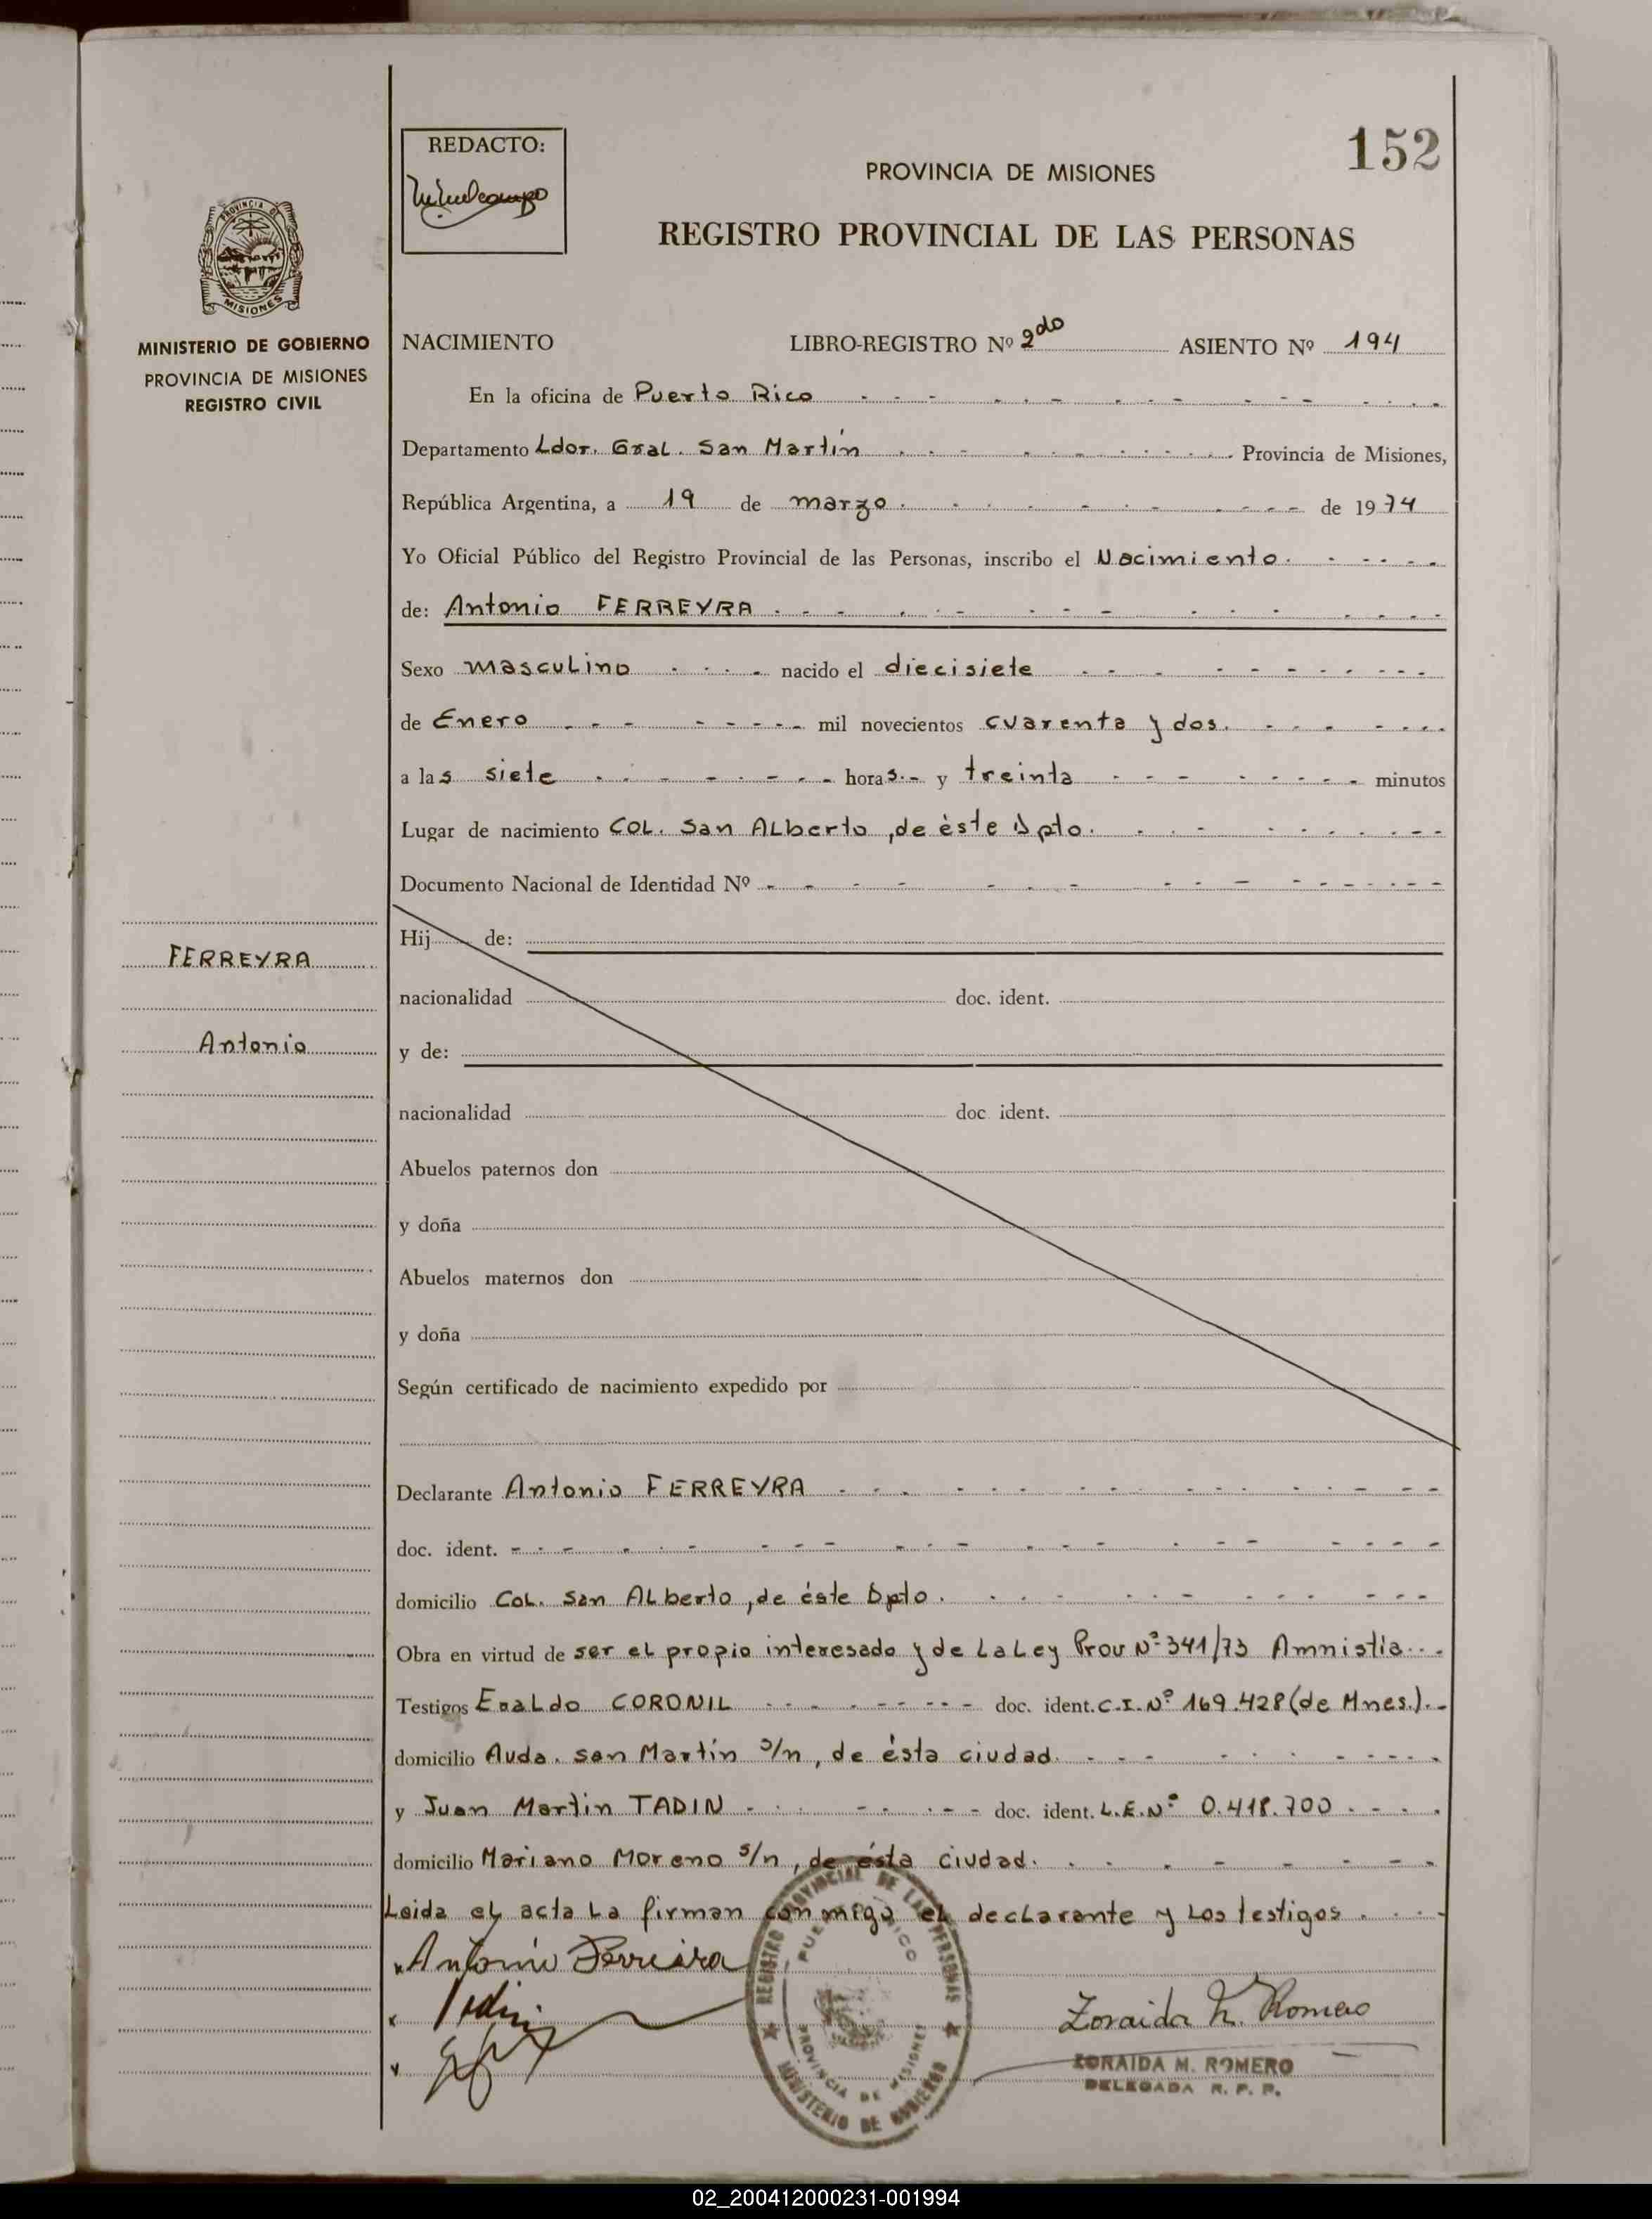 152
REDACTO:
PROVINCIA DE MISIONES
REGISTRO PROVINCIAL DE LAS PERSONAS
PROVINCIA DE
MISIONES
MINISTERIO DE GOBIERNO
PROVINCIA DE MISIONES
REGISTRO CIVIL
NACIMIENTO LIBRO-REGISTRO Nº 2do ASIENTO Nº 194
En la oficina de Puerto Rico
Departamento Ldor. Gral. San Martín Provincia de Misiones,
República Argentina, a 19 de marzo de 1974
Yo Oficial Público del Registro Provincial de las Personas, inscribo el Nacimiento
de: Antonio FERREYRA
Sexo masculino nacido el diecisiete
de Enero mil novecientos cuarenta y dos.
a las siete horas y treinta minutos
Lugar de nacimiento Col. San Alberto, de èste Dpto.
Documento Nacional de Identidad Nº
Hij de:
FERREYRA
nacionalidad doc. ident.
Antonio
y de:
nacionalidad doc. ident.
Abuelos paternos don
y doña
Abuelos maternos don
y doña
Según certificado de nacimiento expedido por
Declarante Antonio FERREYRA
doc. ident.
domicilio Col. San Alberto, de éste Dpto.
Obra en virtud de ser el propio interesado y de la Ley Prov Nº 341/73 Amnistia
Testigos CORONIL doc. ident. C.I. Nº 169.428 (de Mnes.).
domicilio Avda. San Martín s/n, de ésta ciudad.
y Juan Martin TADIN doc. ident. L.E. Nº 0.418.700
domicilio Mariano Moreno s/n, de ésta ciudad.
Leida el acta la firman conmigo el declarante y los testigos
Antonio Ferreira
Zoraida M. Romero
ZORAIDA M. ROMERO
DELEGADA R. P. P.
REGISTRO PROVINCIAL DE LAS PERSONAS
PUERTO RICO
PROVINCIA DE MISIONES
MINISTERIO DE GOBIERNO
02_200412000231-001994